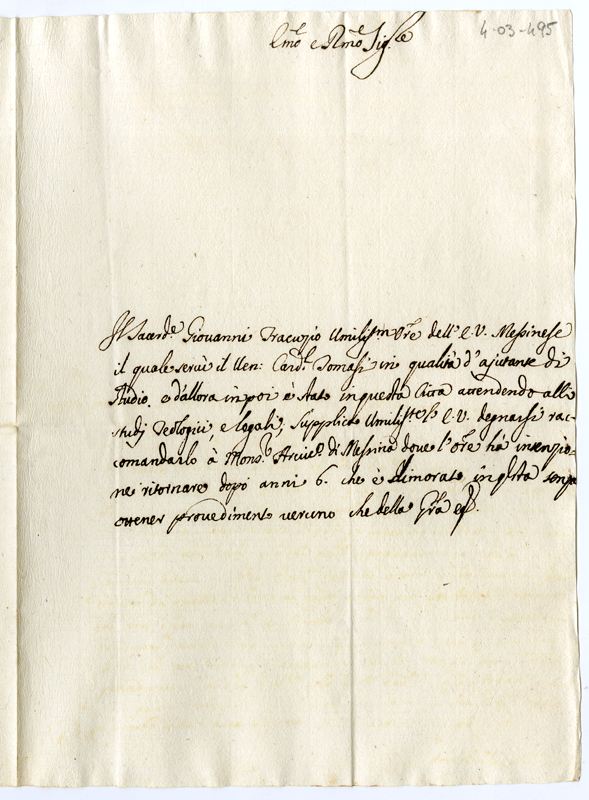 4-03-495
Emo e Rmo Sig.re
Il Sacerd.e Giovanni Tracuzio Umiliss.mo Ore dell' E.V. Messinese
il quale servì il Ven: Card.l Tomasi in qualità d'ajutante di
Studio, e d'allora in poi è stato in questa Città attendendo alli
studj Teologici, e legali, Supplica Umiliss.te l' E.V. degnarsi rac-
comandarlo à Mons.r Arciv.o di Messina dove l'Ore hà intenzio-
ne ritornare dopò anni 6. che è dimorato in qsta senza
ottener provedimento veruno che della Gra etc.